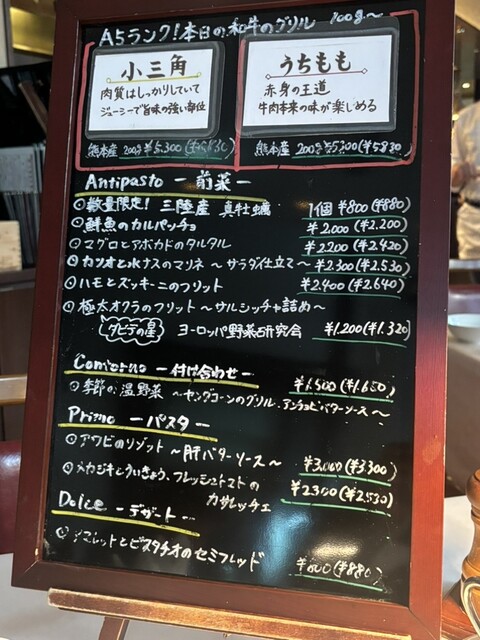 A5ランク!本日の和牛のグリル 100g〜
小三角
肉質はしっかりしていて
ジューシーで旨味の強い部位
熊本産 200g ¥5,300(¥5830)
うちもも
赤身の王道
牛肉本来の味が楽しめる
熊本産 200g ¥5300(¥5830)
Antipasto ー前菜ー
数量限定! 三陸産 真牡蠣 1個 ¥800(¥880)
鮮魚のカルパッチョ ¥2.000(¥2.200)
マグロとアボカドのタルタル ¥2200(¥2.420)
カツオと水ナスのマリネ 〜サラダ仕立て〜 ¥2.300(¥2.530)
ハモとズッキーニのフリット ¥2.400(¥2.640)
極太オクラのフリット 〜サルシッチャ詰め〜
ダビデの星 ヨーロッパ野菜研究会 ¥1.200(¥1.320)
Contorno ー付け合わせー
季節の温野菜 〜ヤングコーンのグリル アンチョビバターソース〜 ¥1.500(¥1.650)
Primo ーパスター
アワビのリゾット 〜肝バターソース〜 ¥3.000(¥3.300)
メカジキとういきょう、フレッシュトマトの
カサレッチェ ¥2300(¥2.530)
Dolce ーデザートー
アマレットとピスタチオのセミフレッド ¥800(¥880)